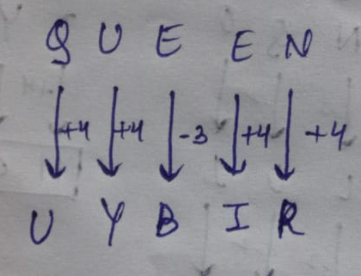 Q U E E N
+4 +4 -3 +4 +4
U Y B I R